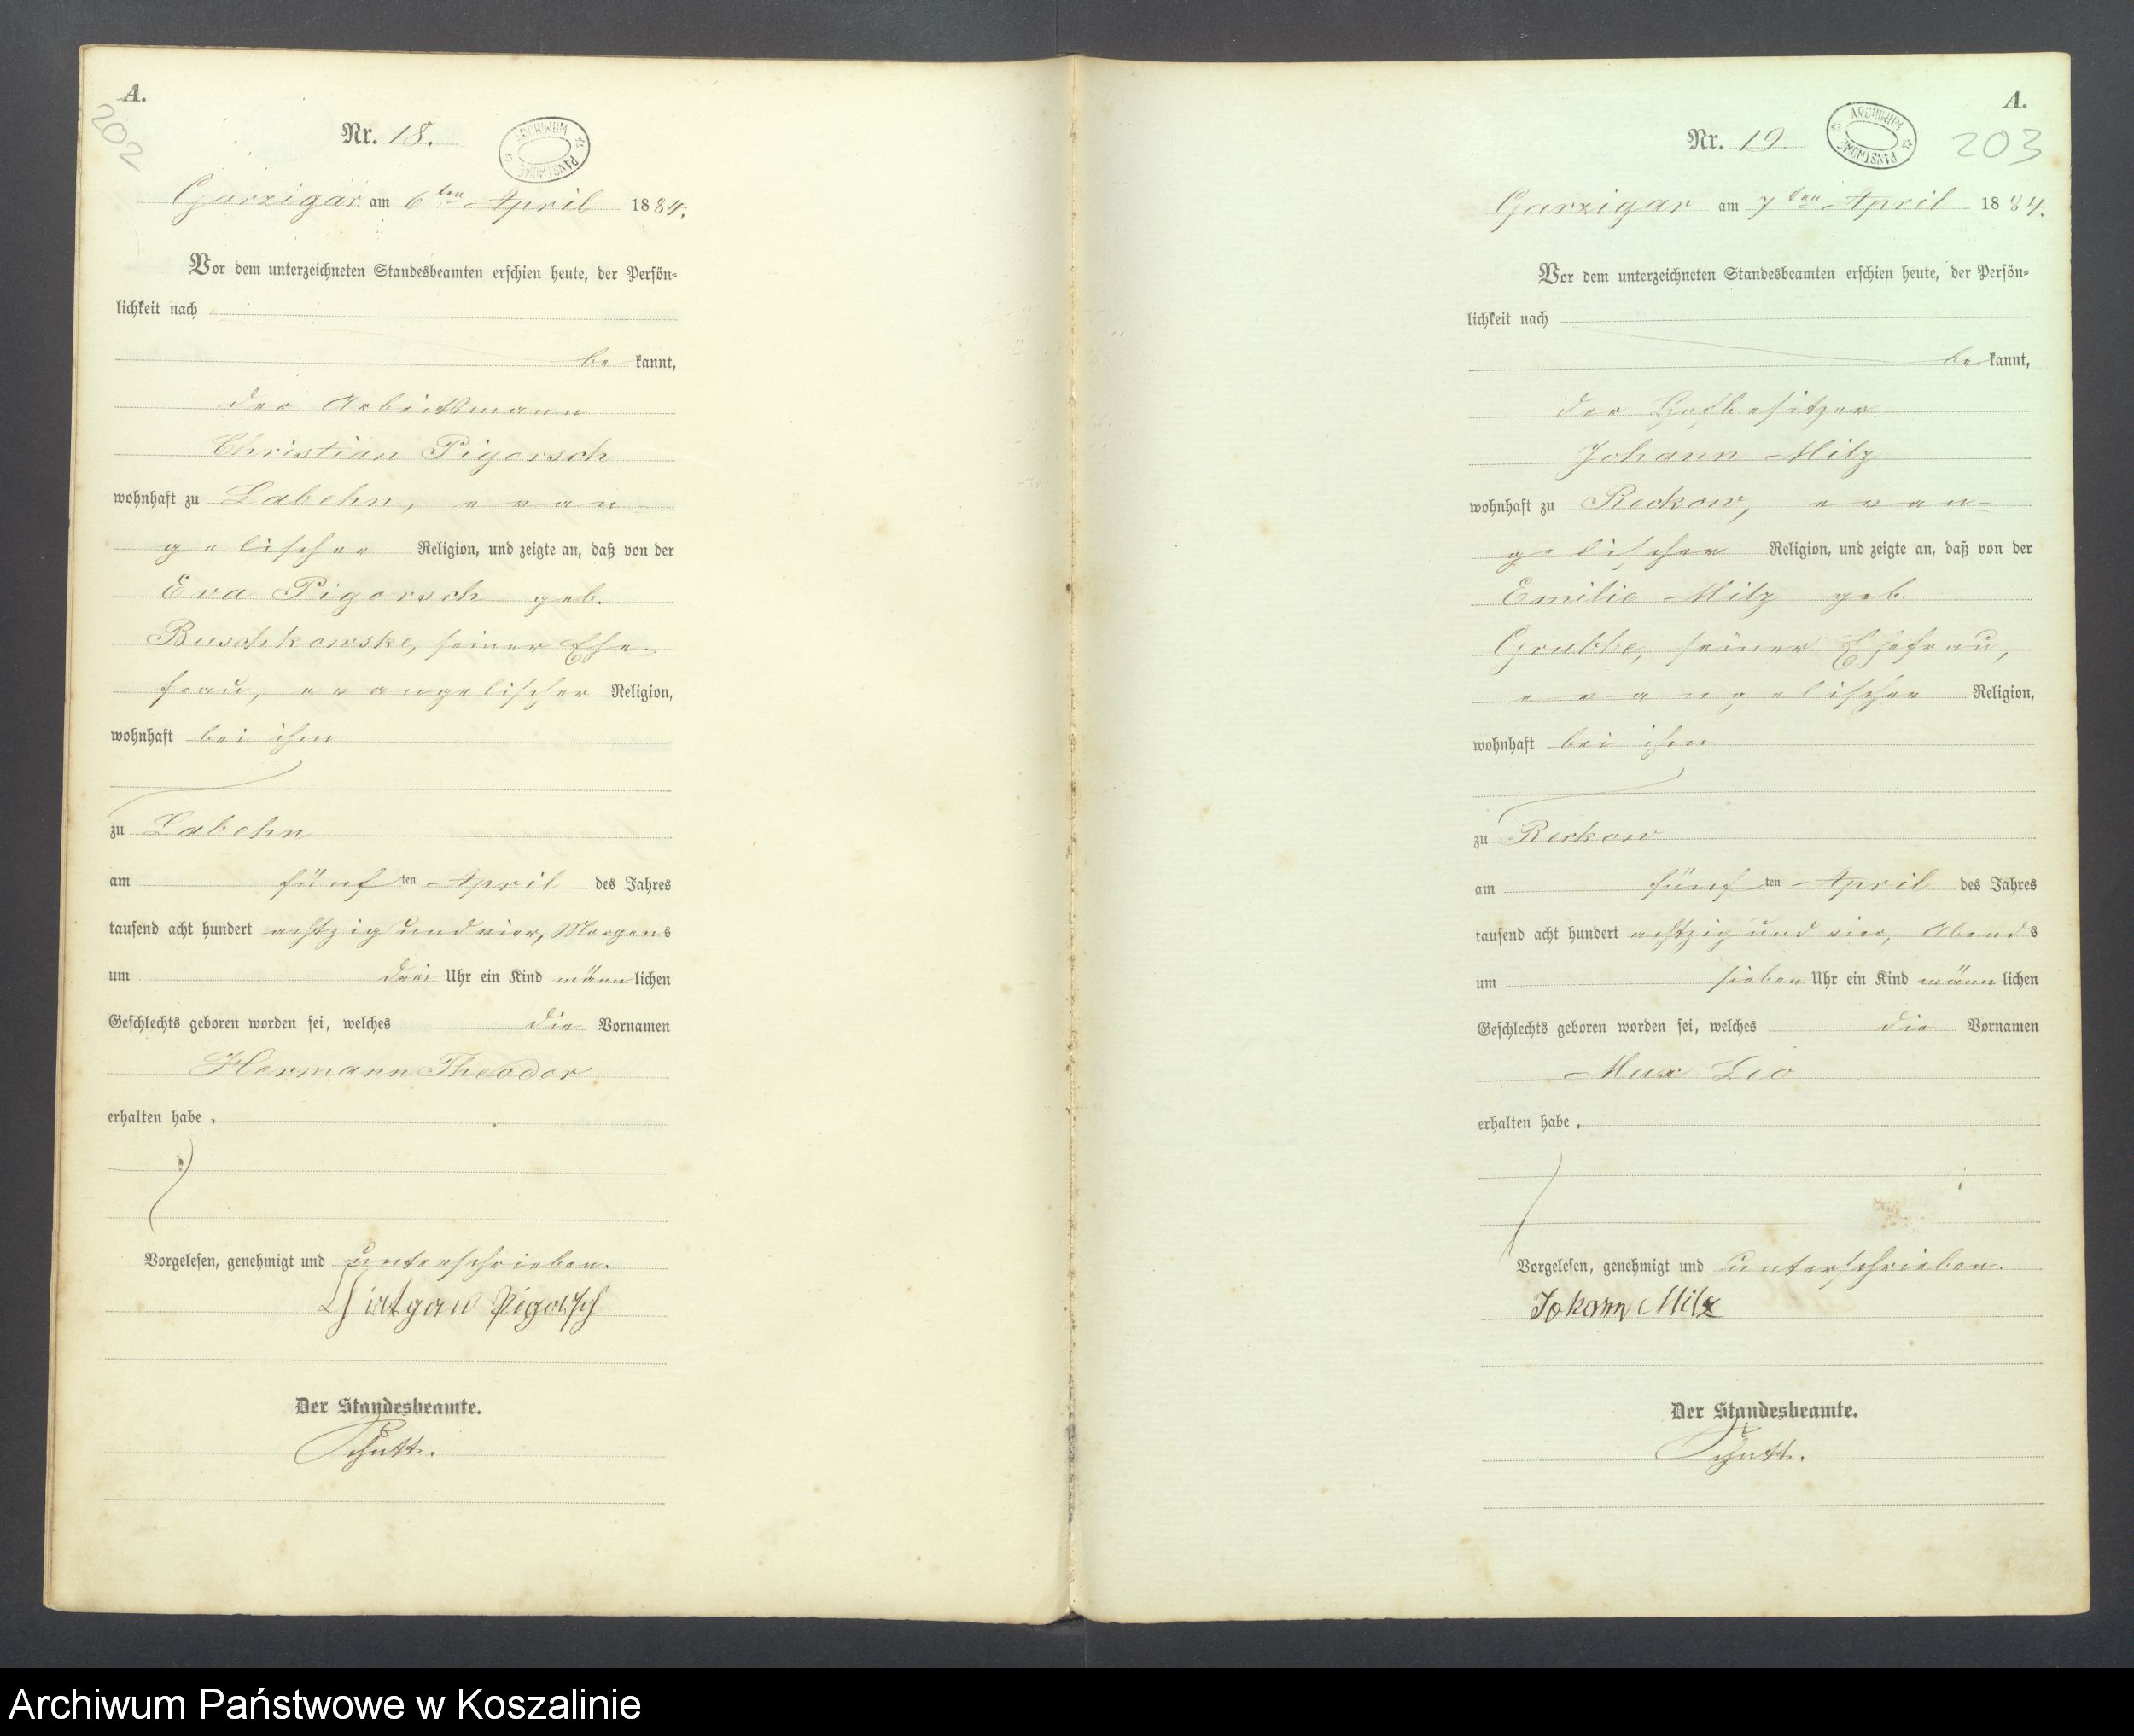 A.
202
Nr. 18.
ARCHIWUM PAŃSTWOWE
Garzigar am 6ten April 1884.
Vor dem unterzeichneten Standesbeamten erschien heute, der Persön=
lichkeit nach
be kannt,
der Arbeitsmann
Christian Pigorsch
wohnhaft zu Labehn, evan=
gelischer Religion, und zeigte an, daß von der
Eva Pigorsch geb.
Buschkowske, seiner Ehe=
frau, evangelischer Religion,
wohnhaft bei ihm
zu Labehn
am fünf ten April des Jahres
tausend acht hundert achtzig und vier, Morgens
um drei Uhr ein Kind männ lichen
Geschlechts geboren worden sei, welches die Vornamen
Hermann Theodor
erhalten habe.
Vorgelesen, genehmigt und unterschrieben.
Pigorsch
Der Standesbeamte.
Schütt.
A.
203
Nr. 19.
ARCHIWUM PAŃSTWOWE
Garzigar am 7ten April 1884.
Vor dem unterzeichneten Standesbeamten erschien heute, der Persön=
lichkeit nach
be kannt,
der Hofbesitzer
Johann Milz
wohnhaft zu Reckow, evan=
gelischer Religion, und zeigte an, daß von der
Emilie Milz geb.
Grubbe, seiner Ehefrau,
evangelischer Religion,
wohnhaft bei ihm
zu Reckow
am fünf ten April des Jahres
tausend acht hundert achtzig und vier, Abends
um sieben Uhr ein Kind männ lichen
Geschlechts geboren worden sei, welches die Vornamen
Max Leo
erhalten habe.
Vorgelesen, genehmigt und unterschrieben.
Johann Milz
Der Standesbeamte.
Schütt.
Archiwum Państwowe w Koszalinie